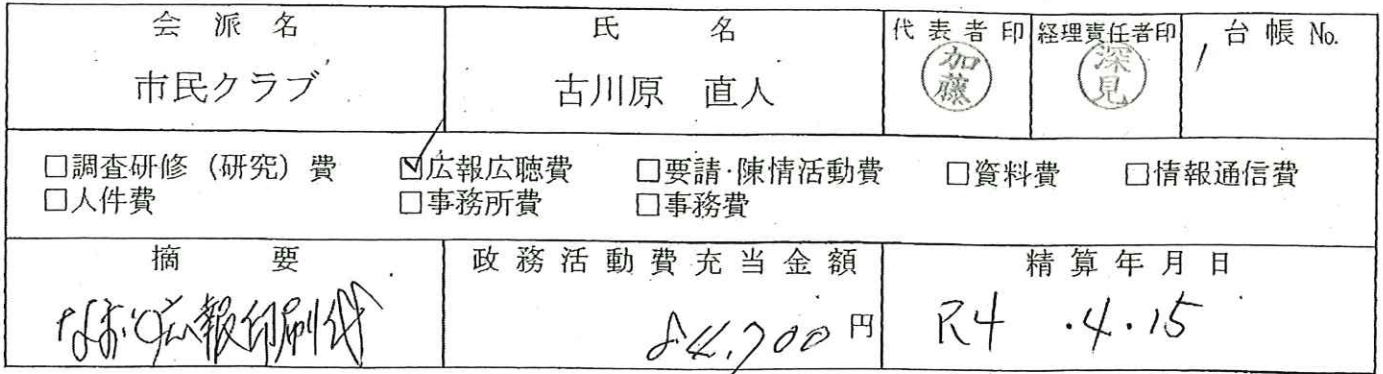 会派名 氏名 代表者印 経理責任者印 台帳No.
市民クラブ 古川原 直人 加藤 深見 1
□調査研修(研究)費 ☑広報広聴費 □要請・陳情活動費 □資料費 □情報通信費
□人件費 □事務所費 □事務費
摘要 政務活動費充当金額 精算年月日
広報印刷代 84,700円 R4.4.15